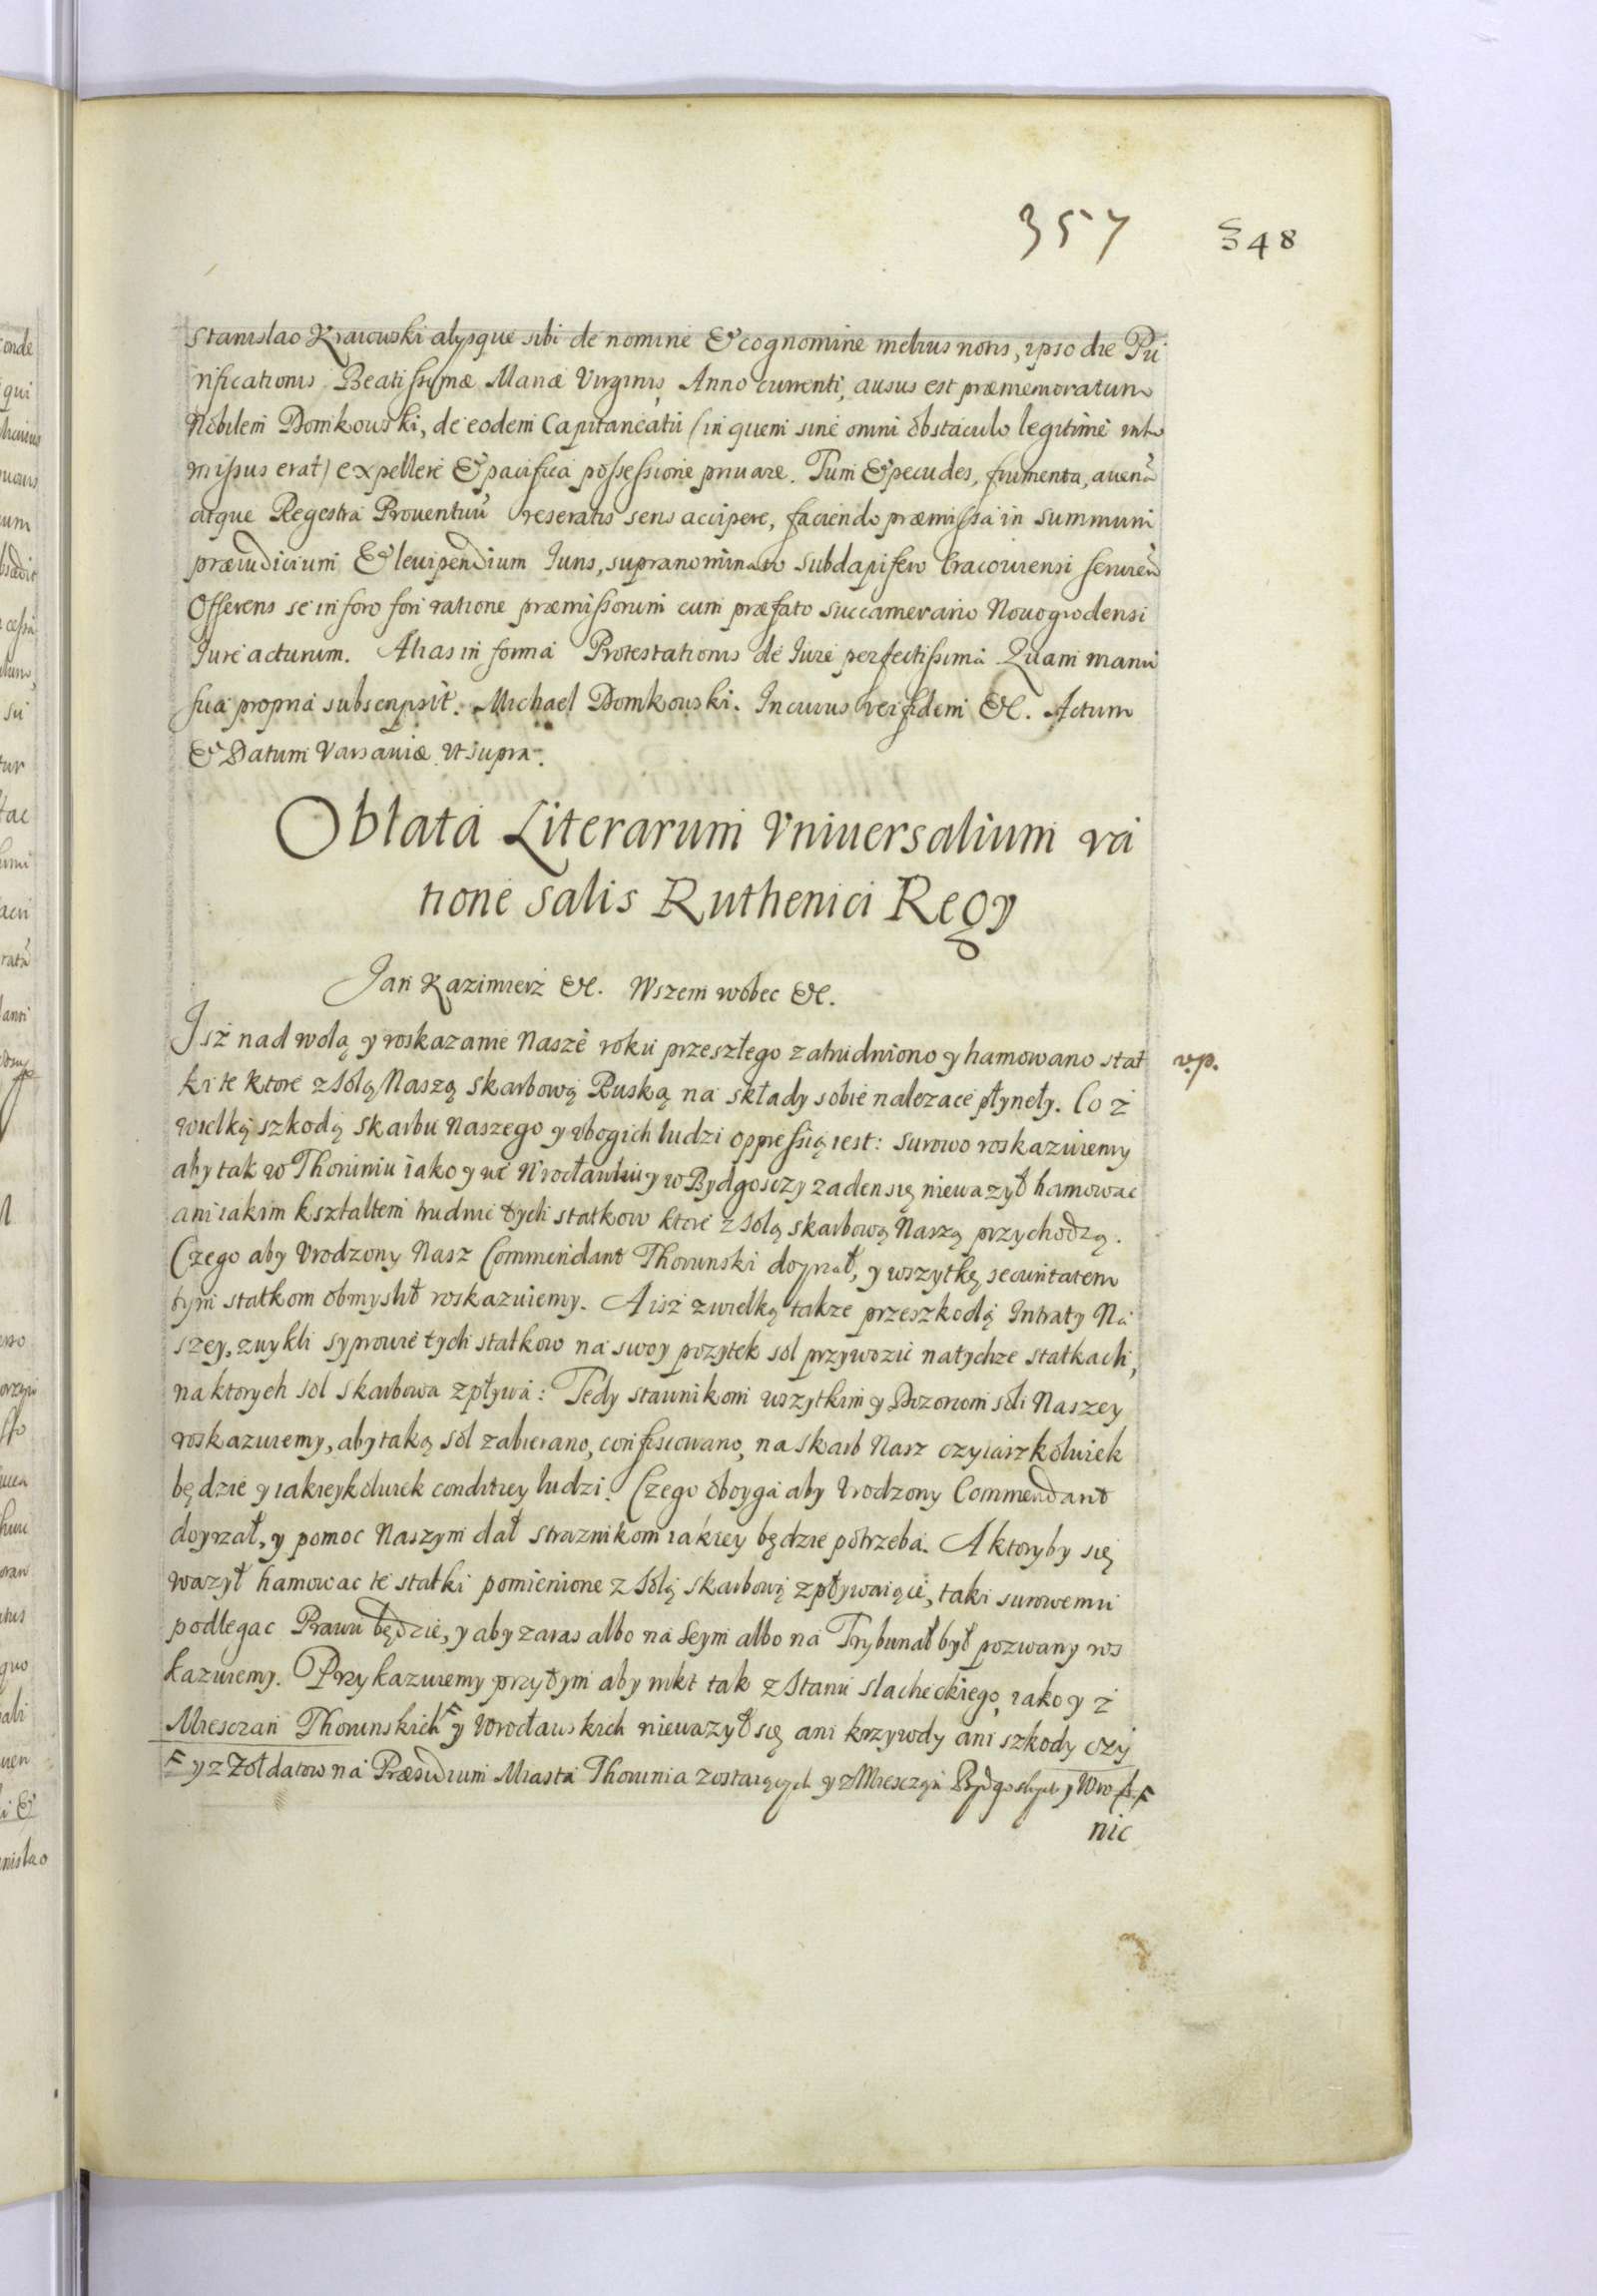 357
348
Stanislao Kraiewski alysque sibi de nomine & cognomine melius notis, ipso die Pu
rificationis Beatissimæ Mariæ Virginis, Anno currenti, ausus est præmemoratum
Nobilem Domkowski, de eodem Capitaneatu (in quem sine omni obstaculo legitime intro
missus erat) expellere & pacifica possessione priuare. Tum & pecudes, frumenta, auenã
atque Regestra Prouentuũ reseratis seris accipere, faciendo præmissa in summum
præiudicium & leuipendium Iuris, supranominato Subdapifero Cracouiensi seruieñ
Offerens se in foro fori ratione præmissorum cum præfato Succamerario Nouogrodensi
Iure acturum. Alias in forma Protestationis de Iure perfectissima Quam manu
sua propria subscripsit. Michael Domkowski. In cuius rei fidem &c. Actum
& Datum Varsaviæ ut supra.
Oblata Literarum Vniuersalium ra
tione Salis Ruthenici Regy
Jan Kazimierz &c. Wszem wobec &c.
Jsz nad wolą y roskazanie Nasze roku przeszłego zatrudniono y hamowano stat
v.p.
ki te ktore z solą Naszą Skarbową Ruską na składy sobie nalezace płyneły. Co z
wielką szkodą Skarbu Naszego y vbogich ludzi oppressią iest: surowo roskazuiemy
aby tak w Thoruniu iako y we Wrocławiu y w Bydgosczy zaden się niewazył hamowac
ani iakim kształtem trudnic tych statkow ktore z solą skarbową Naszą przychodzą.
Czego aby Vrodzony Nasz Commendant Thorunski doyrzał, y wszytkę securitatem
tym statkom obmyslił roskazuiemy. A isz z wielką takze przeszkodą Intraty Na
szey, zwykli syprowie tych statkow na swoy pozytek sol przywozic na tychze statkach,
na ktorych sol Skarbowa zpływa: Tedy straznikom wszytkim y Dozorcom soli Naszey
roskazuiemy, aby taką sol zabierano, confiscowano, na Skarb Nasz czyiaszkolwiek
będzie y iakieykolwiek conditiey ludzi. Czego oboyga aby Vrodzony Commendant
doyrzał, y pomoc Naszym dał straznikom iakiey będzie potrzeba. A ktoryby się
wazył hamowac te statki pomienione z solą skarbową zpływaiące, taki surowemu
podlegac Prawu będzie, y aby zaras albo na Seym albo na Trybunał był pozwany ros
kazuiemy. Przykazuiemy przytym aby nikt tak z Stanu slacheckiego, iako y z
Miesczan Thorunskich F y Wrocławskich niewazył się ani krzywdy ani szkody czy
F y z Zołdatow na Præsidium Miasta Thorunia zostaiących y z Miesczan Bydgoskych y
nic